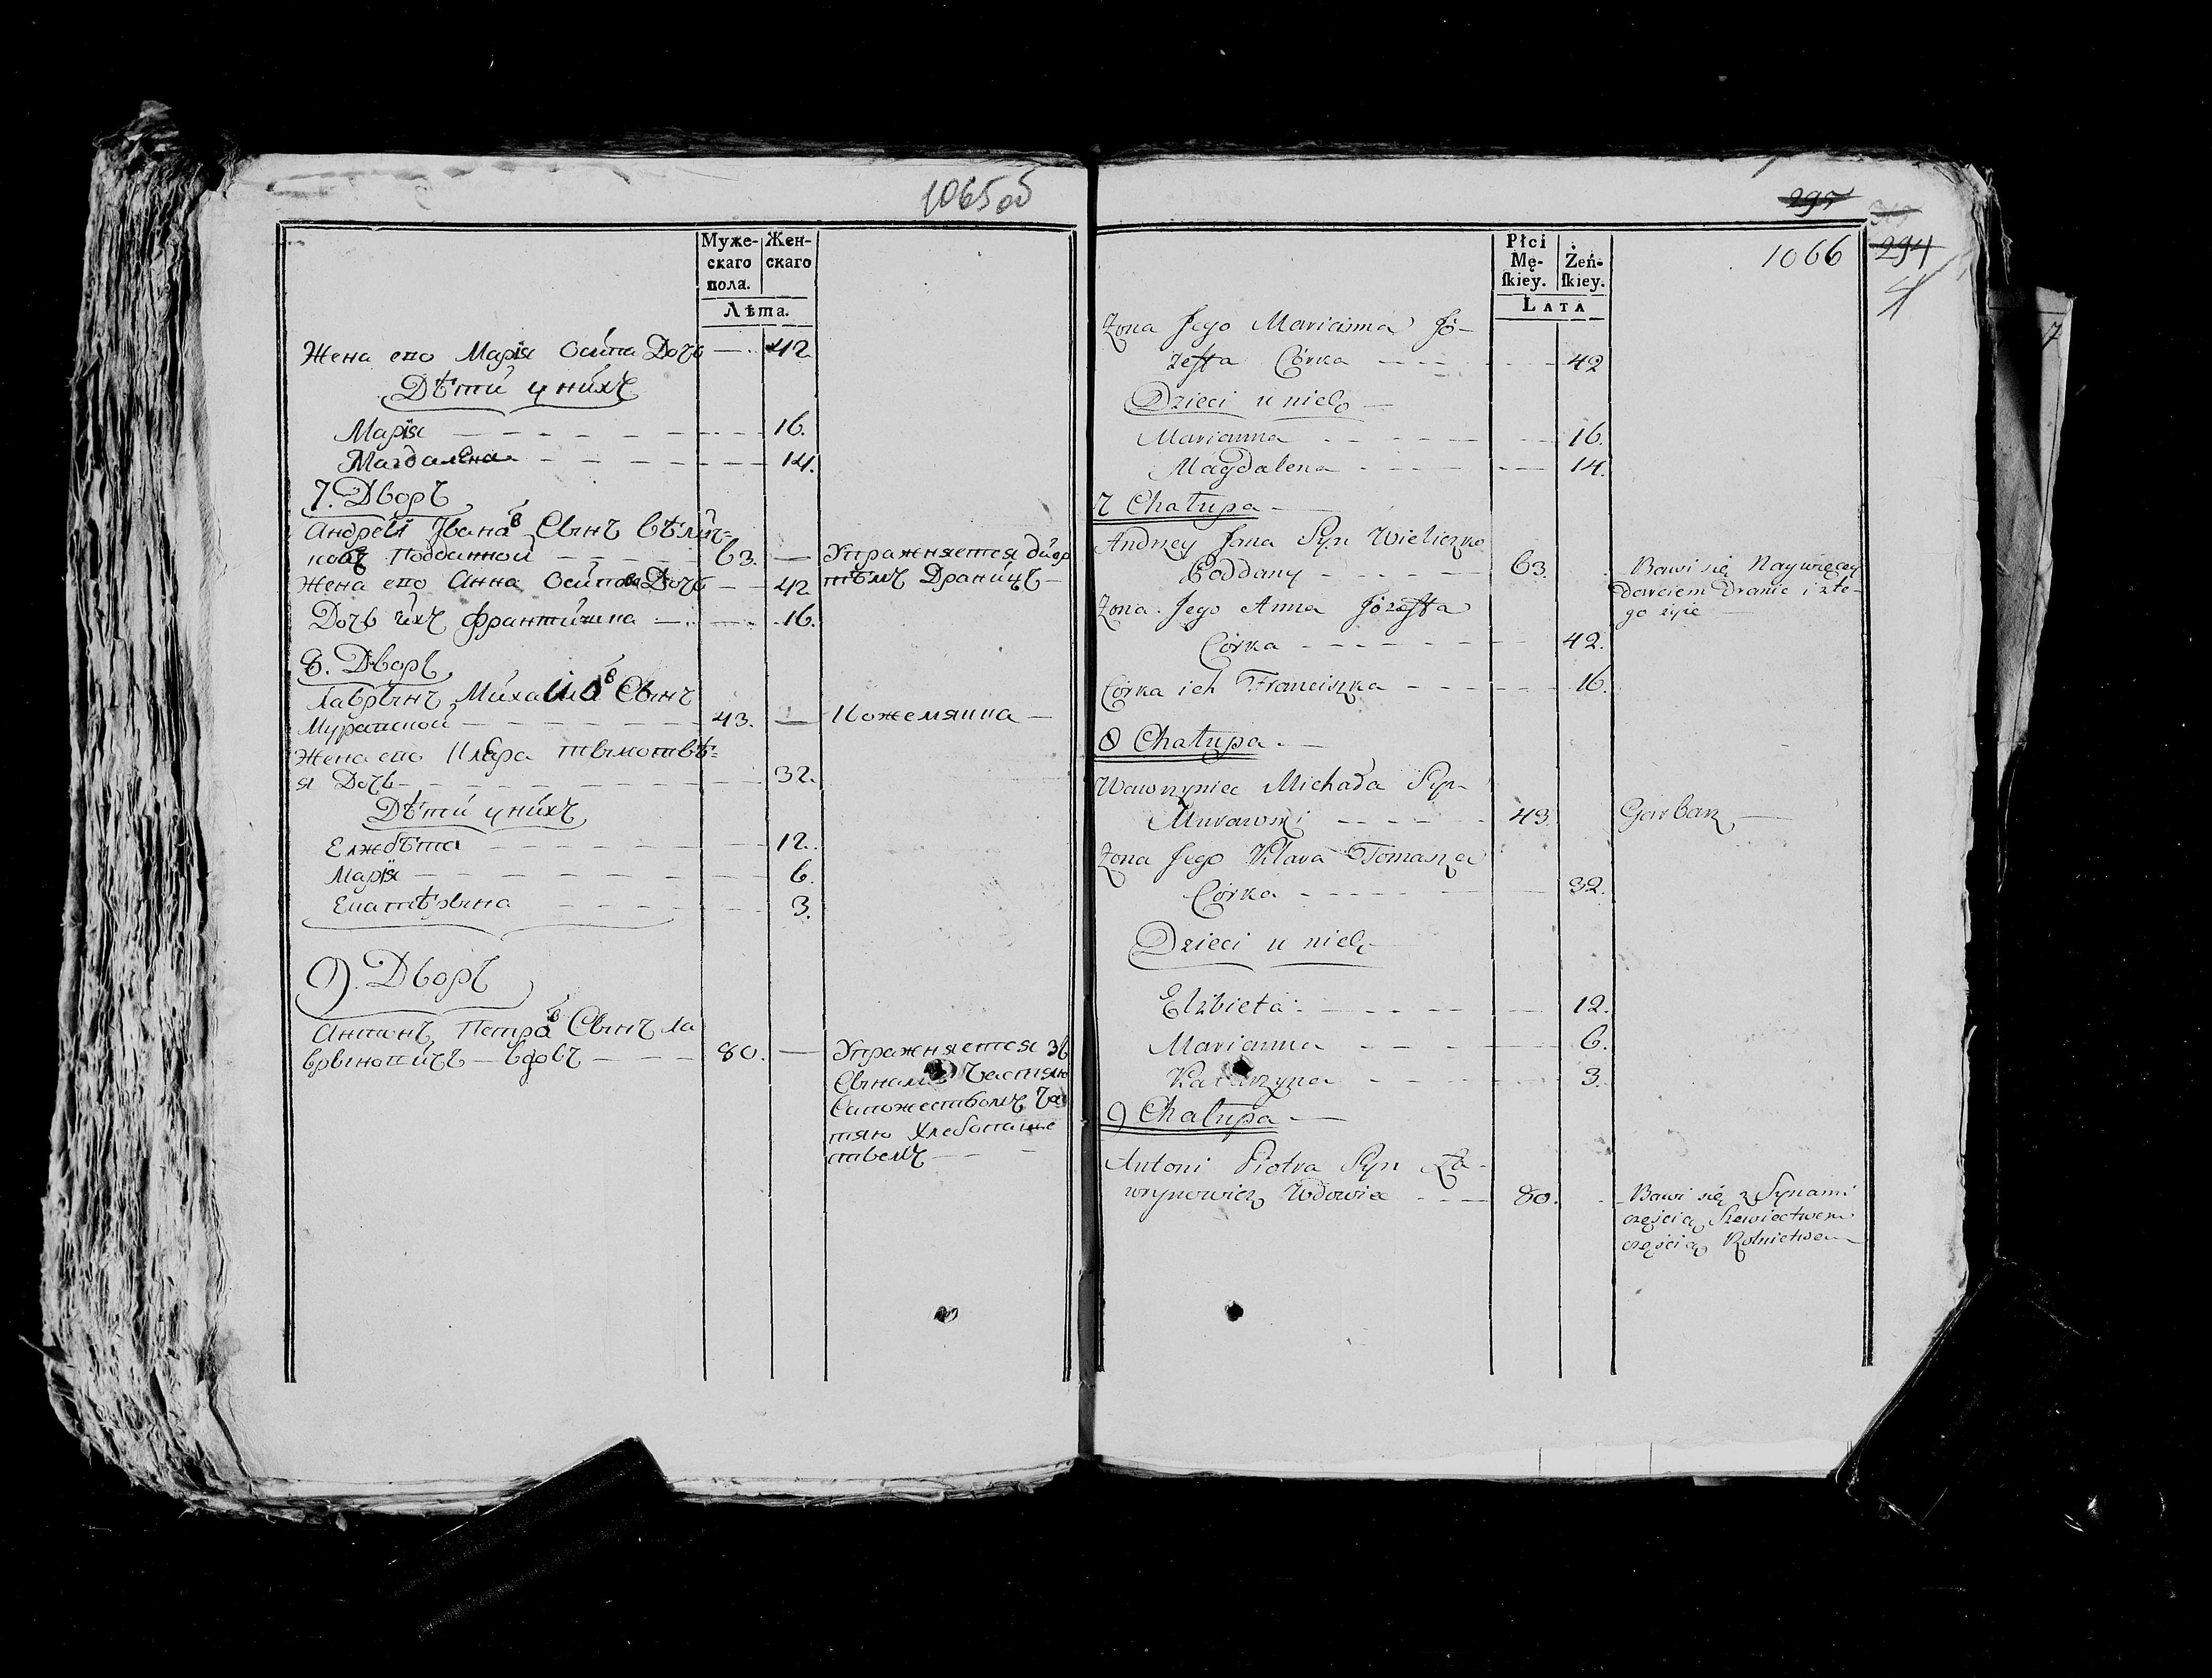 1065 об
Муже-
скаго
пола.
Жен-
скаго
Лѣта.
Жена его Марія Осипа Дочь — 42
Дѣти у нихъ
Марія — 16.
Магдалена — 14.
7. Дворъ
Андрей Ивана Сынъ Вѣлич-
Подданной — 63. —
Жена его Анна Осипова Дочь — 42
Дочь ихъ Францишка — 16.
Упражняется
Драницъ —
8. Дворъ
Лаврынъ Михайла Сынъ
Муравской — 43. — Кожемяка —
Жена его Клара Тымотѣ-
я Дочь — 32.
Дѣти у нихъ
Елжбѣта — 12.
Марія — 6.
Екатѣрына — 3.
9. Дворъ
Антонъ Петра Сынъ Ла
врыновичъ — вдовъ — 80. —
Упражняется зъ
Сынами Частяю
Сапожествомъ Час
тяю Хлебопаше
ствомъ —
295
294
1066
Płci
Mę-
ſkiey.
Żeń-
ſkiey.
LATA
Zona Jego Marianna Jó-
zeffa Córka — 42
Dzieci u nich —
Marianna — 16.
Magdalena — 14.
7 Chałupa —
Andrzey Jana Syn Wieliczko
Poddany — 63.
Bawi się Naywięcey
darciem Dranic i z te-
go żyie —
Zona Jego Anna Józeffa
Córka — 42.
Córka ich Franciszka — 16.
8 Chałupa —
Wawrzyniec Michała Syn
Murawski — 43. Garbarz —
Zona Jego Klara Tomasza
Córka — 32.
Dzieci u nich
Elżbieta — 12.
Marianna — 6.
Katarzyna — 3.
9 Chałupa —
Antoni Piotra Syn Ła-
wrynowicz Wdowiec — 80.
Bawi się z Synami
częścią Szewiectwem
częścią Rolnictwem